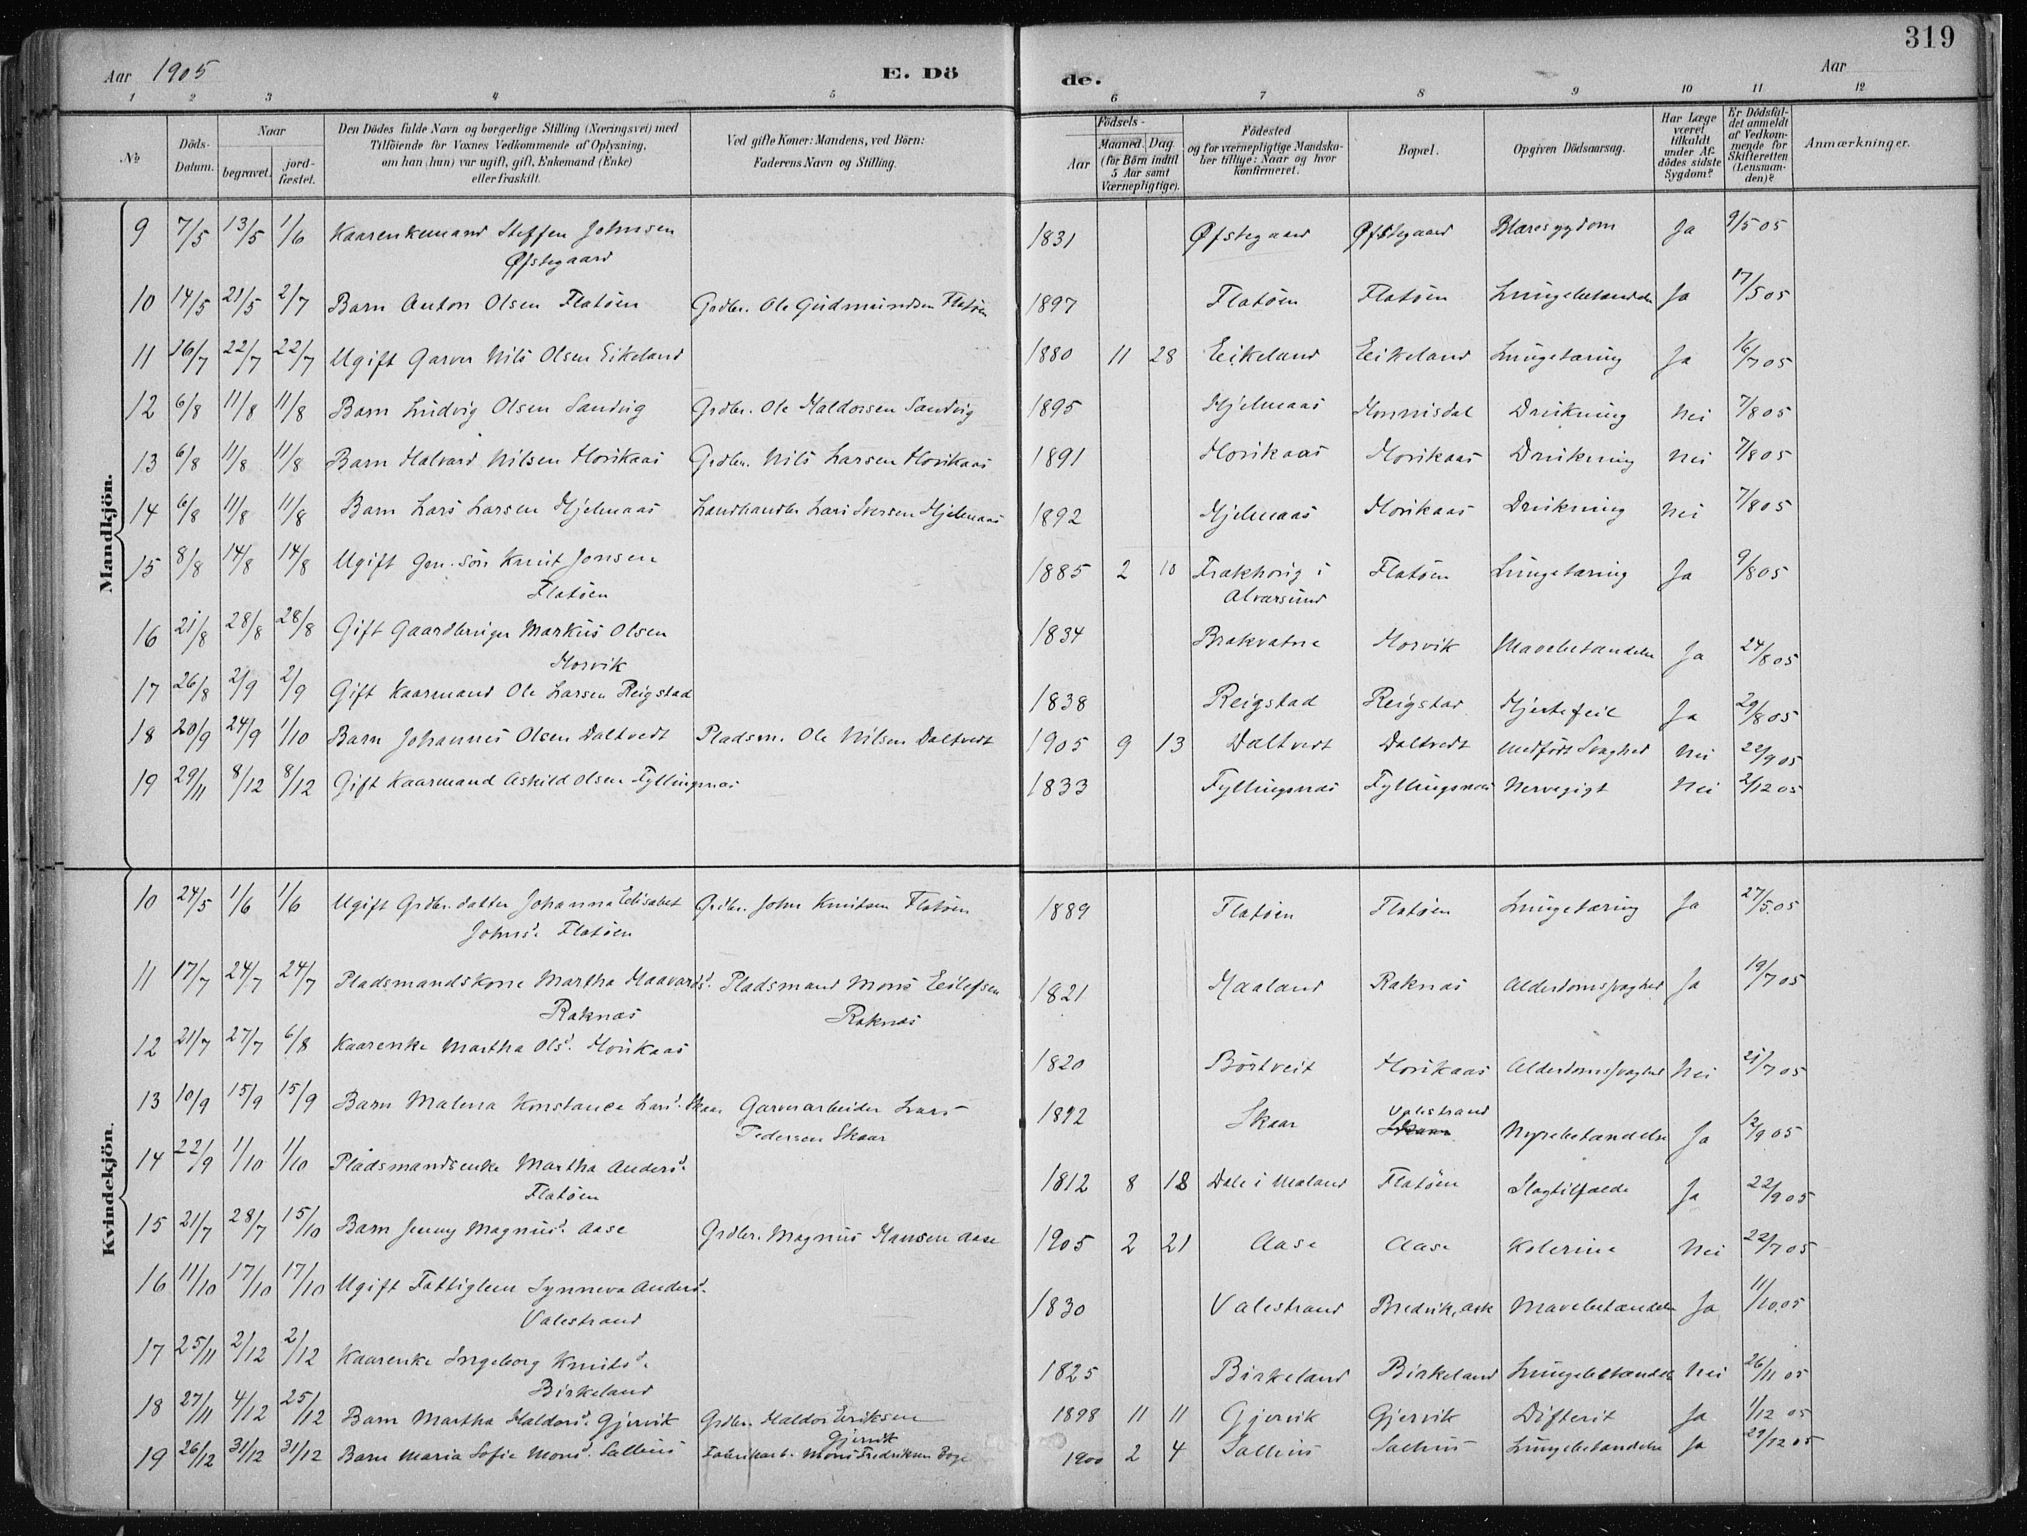 319
Aar 1905
E. Dö
de.
Aar
1 2 3 4 5 6 7 8 9 10 11 12
№
Döds-Datum.
Naar
begravet.
jord-fæstet.
Den Dödes fulde Navn og borgerlige Stilling (Næringsvei) med
Tilföiende for Voxnes Vedkommende af Oplysning,
om han (hun) var ugift, gift, Enkemand (Enke)
eller fraskilt.
Ved gifte Koner: Mandens, ved Börn:
Faderens Navn og Stilling.
Födsels-
Aar
Maaned. Dag.
(for Börn indtil
5 Aar samt
Værnepligtige).
Födested
og for værnepligtige Mandska-
ber tillige: Naar og hvor
konfirmeret.
Bopæl.
Opgiven Dödsaarsag.
Har Læge
været
tilkaldt
under Af-
dödes sidste
Sygdom?
Er Dödsfal-
det anmeldt
af Vedkom-
mende for
Skifteretten
(Lensman-
den)?
Anmærkninger.
Mandkjön.
9 7/5 13/5 1/6 Kaarenkemand Steffen Johnsen 1831 Øfstegaard Øfstegaard Blæresygdom Ja 9/5 05
Øfstegaard
10 14/5 21/5 2/7 Barn Anton Olsen Flatøen Grdbr. Ole Gudmundsen Flatøen 1897 Flatøen Flatøen Lungebetændelse Ja 17/5 05
11 16/7 22/7 22/7 Ugift Garver Nils Olsen Eikeland 1880 11 28 Eikeland Eikeland Lungetæring Ja 16/7 05
12 6/8 11/8 11/8 Barn Ludvig Olsen Sandvig Grdbr. Ole Haldorsen Sandvig 1895 Hjelmaas Monnisdal Drukning Nei 7/8 05
13 6/8 11/8 11/8 Barn Halvard Nilsen Horikaas Grdbr. Nils Larsen Horikaas 1891 Horikaas Horikaas Drukning Nei 7/8 05
14 6/8 11/8 11/8 Barn Lars Larsen Hjelmaas Landhandler Lars Iversen Hjelmaas 1892 Hjelmaas Horikaas Drukning Nei 7/8 05
15 8/8 14/8 14/8 Ugift Søn Knut Jonsen 1885 2 10 i Flatøen Lungetæring Ja 9/8 05
Flatøen Alversund
16 21/8 28/8 28/8 Gift Gaardbruger Markus Olsen 1834 Brakvatne Horvik Mavebetændelse Ja 24/8 05
Horvik
17 26/8 2/9 2/9 Gift Kaarmand Ole Larsen Reigstad 1838 Reigstad Reigstad Hjertefeil Ja 29/8 05
18 20/9 24/9 1/10 Barn Johannes Olsen Daltvedt Pladsm. Ole Nilsen Daltvedt 1905 9 13 Daltvedt Daltvedt Medfødt Svaghed Nei 22/9 05
19 29/11 8/12 8/12 Gift Kaarmand Askild Olsen Fyllingsnæs 1833 Fyllingsnæs Fyllingsnæs Nervegigt Nei 2/12 05
Kvindekjön.
10 24/5 1/6 1/6 Ugift Grdbr. datter Johanna Elisabet Grdbr. John Knutsen Flatøen 1889 Flatøen Flatøen Lungetæring Ja 27/5 05
Johnsd. Flatøen
11 17/7 24/7 24/7 Pladsmandskone Martha Haavardsd. Pladsmand Mons Eilefsen 1821 Maaland Raknæs Alderdomssvaghed Ja 19/7 05
Raknæs Raknæs
12 21/7 27/7 6/8 Kaarenke Martha Olsd. Horikaas 1820 Børtveit Horikaas Alderdomssvaghed Nei 21/7 05
13 10/9 15/9 15/9 Barn Malena Konstance Larsd. Skaar Garverarbeider Lars 1892 Skaar Valestrand Skaar Nyrebetændelse Ja 12/9 05
Pedersen Skaar
14 22/9 1/10 1/10 Pladsmandsenke Martha Andersd. 1812 8 18 Dale i Maland Flatøen Slagtilfælde Ja 22/9 05
Flatøen
15 21/7 28/7 15/10 Barn Jenny Magnusd. Aase Grdbr. Magnus Hansen Aase 1905 2 21 Aase Aase Kolerine Nei 22/7 05
16 11/10 17/10 17/10 Ugift Fattiglem Synneva Andersd. 1830 Valestrand Bredvik, Ask Mavebetændelse Ja 11/10 05
Valestrand
17 25/11 2/12 2/12 Kaarenke Ingeborg Knutsd. 1825 Birkeland Birkeland Lungebetændelse Nei 26/11 05
Birkeland
18 27/11 4/12 25/12 Barn Martha Haldorsd. Gjervik Grdbr. Haldor Eriksen 1898 11 11 Gjervik Gjervik Difterit Ja 1/12 05
Gjervik
19 26/12 31/12 31/12 Barn Maria Sofie Monsd. Salhus Fabrikarb. Mons Fredriksen Boge 1900 2 4 Salhus Salhus Lungebetændelse Ja 29/12 05